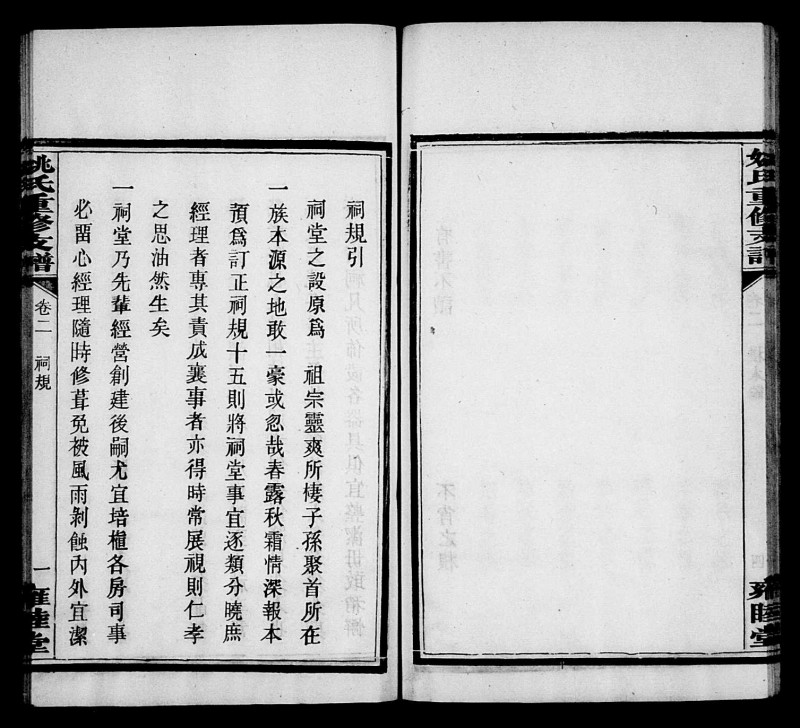 姚氏重修支譜
雍睦堂
祠規引
祠堂之設原爲 祖宗靈爽所棲子孫聚首所在
一族本源之地敢一豪或忽哉春露秋霜情深報本
預爲訂正祠規十五則將祠堂事宜逐類分曉庶
經理者專其責成襄事者亦得時常展視則仁孝
之思油然生矣
一祠堂乃先輩經營創建後嗣尤宜培植各房司事
必畱心經理隨時修葺免被風雨剝蝕內外宜潔
姚氏重修支譜
卷二 祠規
一 雍睦堂